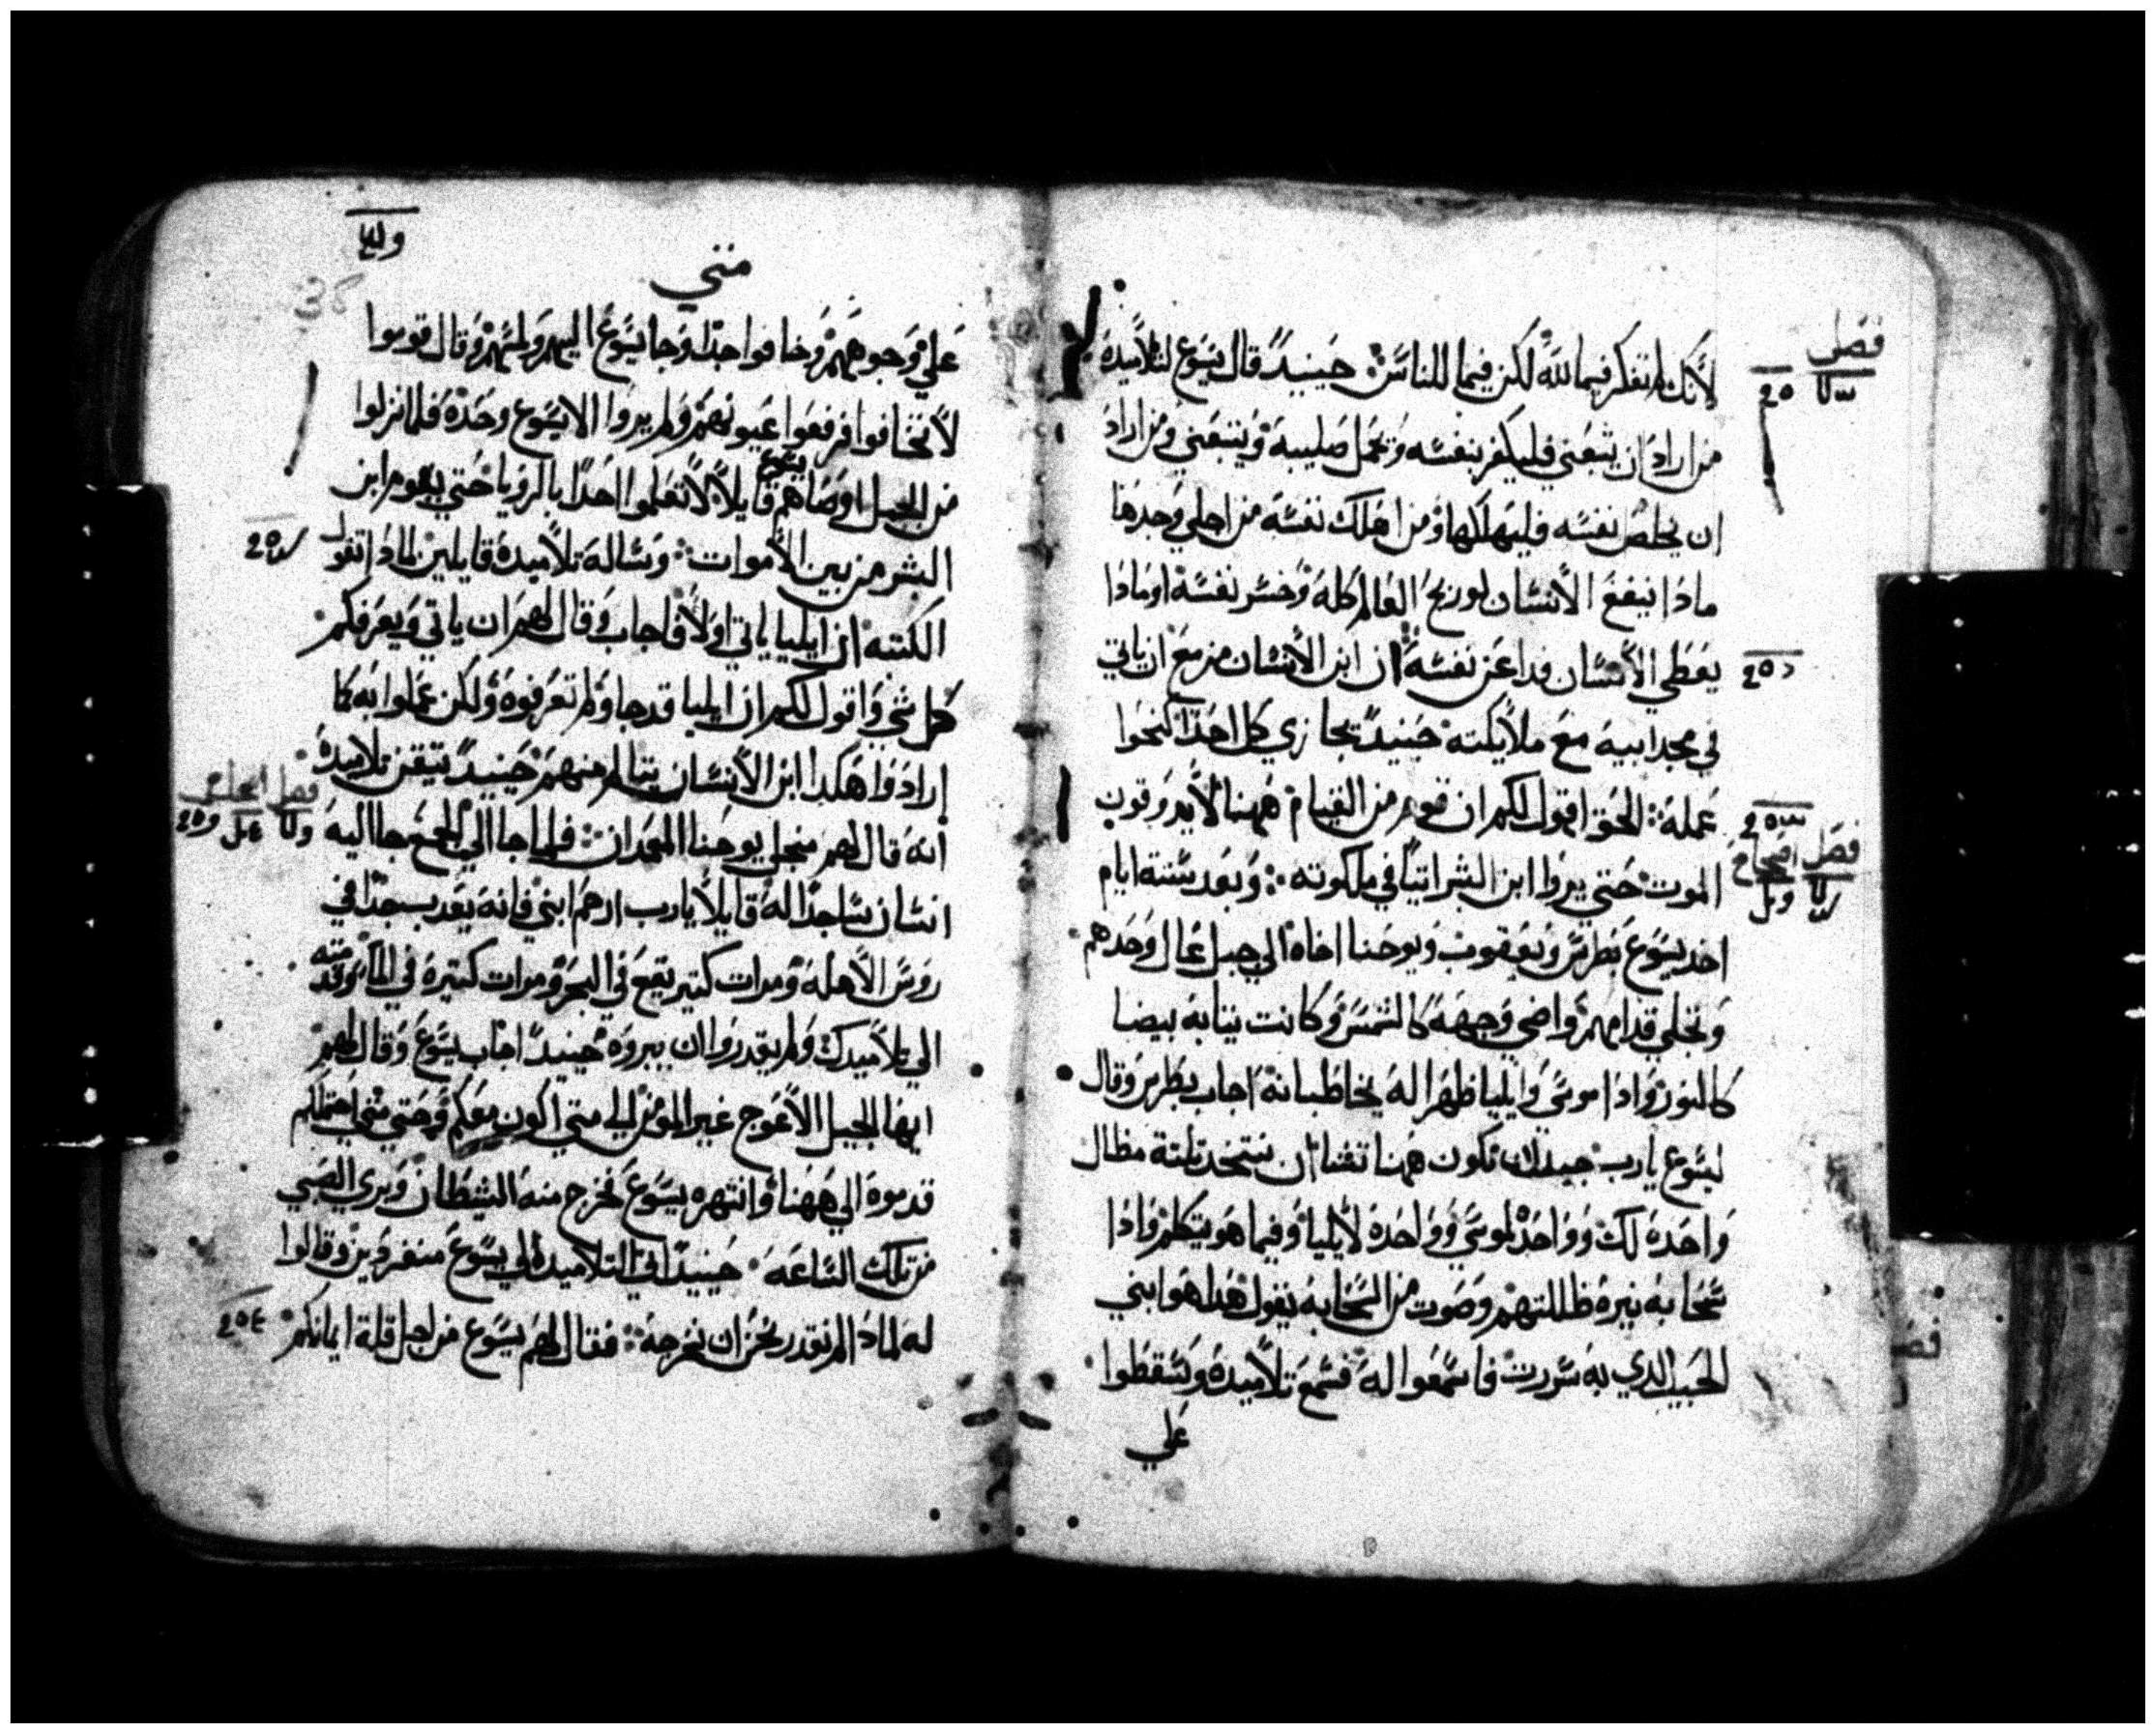 فصل
لأنك لم تفكر فيما لله لكن فيما للناس حينيد قال يسوع لتلاميده
من اراد ان يتبعني فليكفر بنفسه ويحمل صليبه ويتبعني ومن اراد
ان يخلص نفسه فليهلكها ومن اهلك نفسه من اجلي وجدها
مادا ينفع الأنسان لو ربح العالم كله وخسر نفسه او مادا
يعطي الأنسان فدا عن نفسه ان ابن الأنسان مزمع ان ياتي
في مجد ابيه مع ملايكته حينيد يجازي كل احد كنحوا
عمله الحق اقول لكم ان قوم من القيام ههنا لا يدوقون
فصل اصحاح
الموت حتي يروا ابن البشر اتيا في ملكوته وبعد ستة ايام
اخد يسوع بطرس ويعقوب ويوحنا اخاه الي جبل عال وحدهم
وتجلي قدامهم واضي وجهه كالشمس وكانت تيابه بيضا
كالنور وادا موسي وايليا ظهرا له يخاطبانه اجاب بطرس وقال
ليسوع يارب جيد ان نكون ههنا تشا ان نتخد تلتة مظال
واحدة لك وواحدة لموسي وواحدة لأيليا وفيما هو يتكلم وادا
سحابه نيره ظللتهم وصوت من السحابه يقول هدا هو ابني
الحبيب الدي به سررت فاسمعوا له فسمع تلاميده وسقطوا
علي
متي
علي وجوههم وخافوا جدا وجا يسوع اليهم ولمسهم وقال قوموا
لأ تخافوا فرفعوا عيونهم ولم يروا الا يسوع وحده فلما نزلوا
من الجبل اوصاهم يسوع قايلاً لأ تعلموا احدا بالرويا حتي يقوم ابن
البشر من بين الأموات وساله تلاميده قايلين لمادا تقول
الكتبه ان ايليا ياتي اولأ فاجاب وقال لهم ان ياتي ويعرفكم
كل شي واقول لكم ان ايليا قد جا ولم تعرفوه ولكن عملوا به كما
ارادوا هكدا ابن الأنسان يتالم منهم حينيد تيقن تلاميده
انه قال لهم من اجل يوحنا المعمدان فلما جا الي الجمع جا اليه
انسان ساجدا له قايلاً يارب ارحم ابني فانه يعدب جدا في
روس الأهله ومرات كتير يقع في البحر ومرات كتيرة في الما وقدمته
الي تلاميدك ولم يقدروا ان يبروه حينيد اجاب يسوع وقال لهم
ايها الجيل الأعوج غير المومن الي متي اكون معكم وحتي متي احتملكم
قدموه الي ههنا وانتهره يسوع فخرج منه الشيطان وبري الصبي
من تلك الساعه حينيد اتي التلاميد الي يسوع منفردين وقالوا
له لمادا لم نقدر نحن ان نخرجه فقال لهم يسوع من اجل قلة ايمانكم